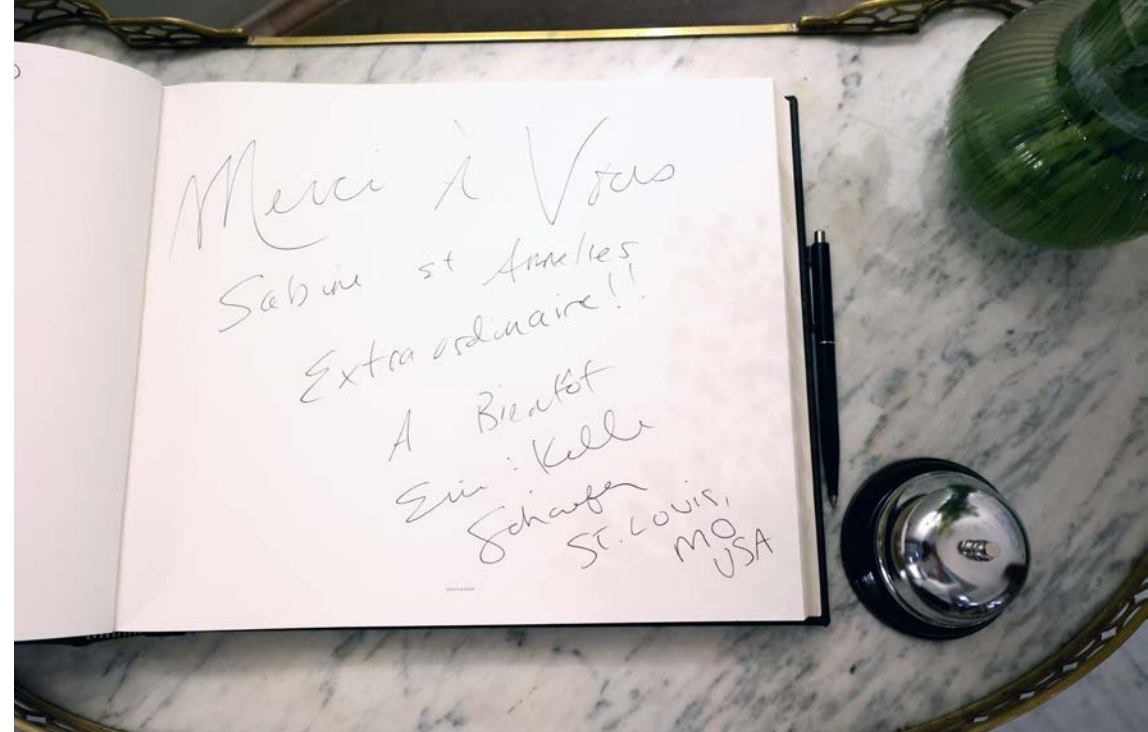 Merci À Vous
Sabine et Annelies
Extraordinaire!!
A Bientôt
Eric : Kelli
Schaefer
ST. LOUIS,
MO
USA